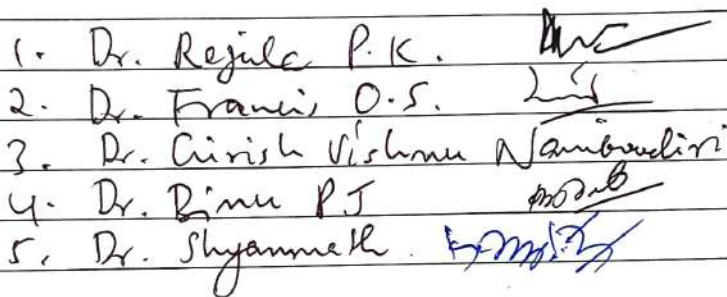 1. Dr. Rejula P.K.
2. Dr. Francis O.S.
3. Dr. Girish Vishnu Namboodiri
4. Dr. Binu PJ
5. Dr. Shyamnath